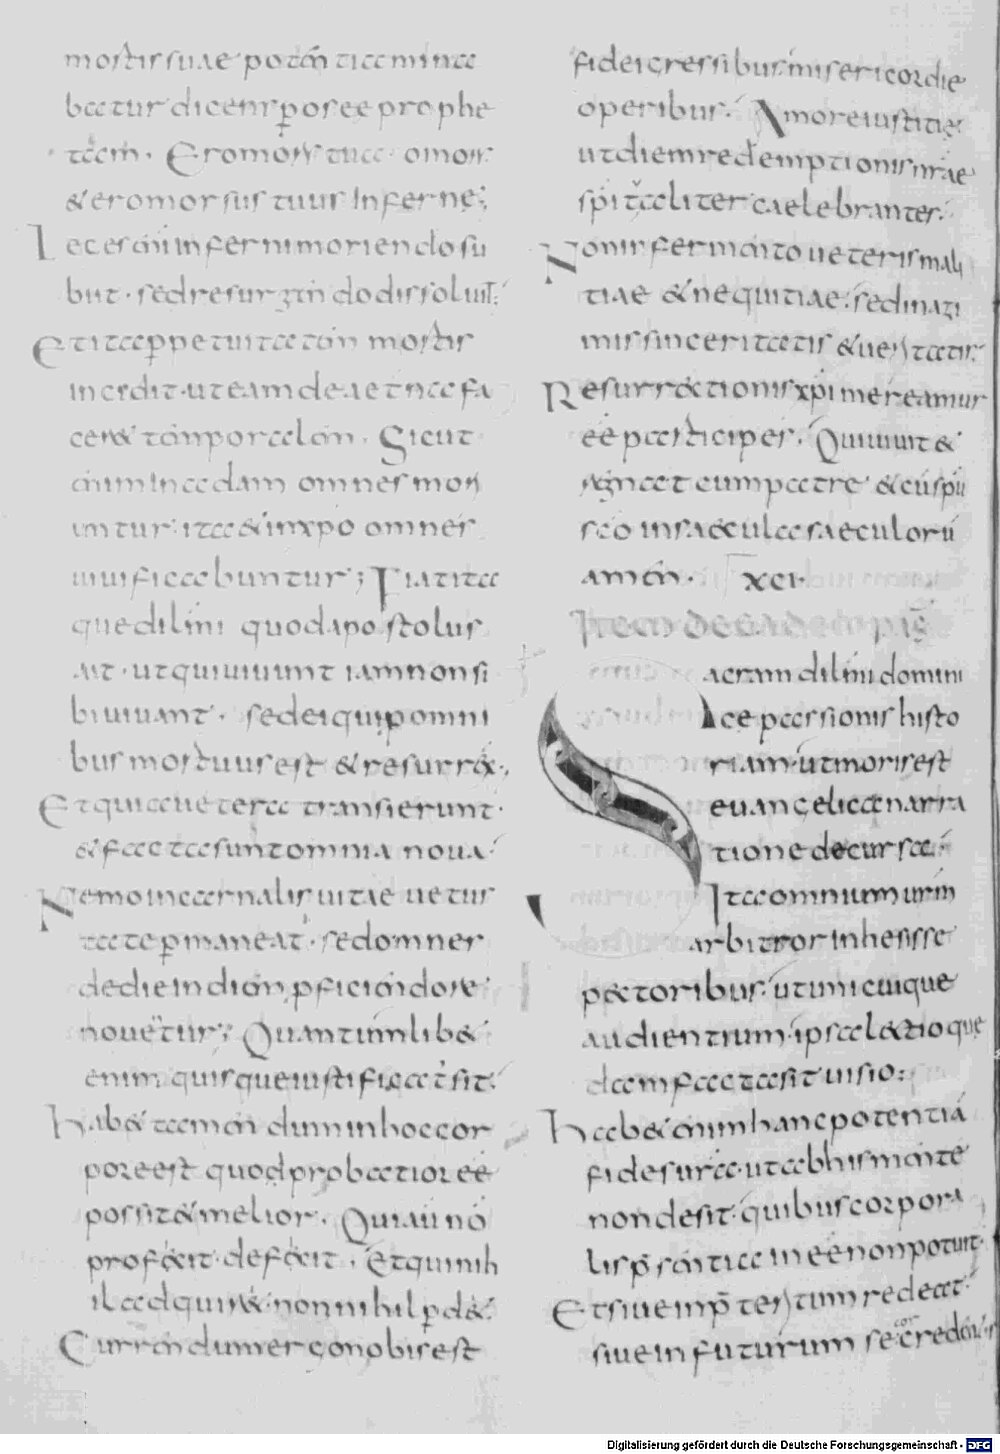 mortis suae potentia mina
batur dicens per osee prophe
tam. Ero mors tua o mors
& ero morsus tuus inferne;
Leges enim inferni moriendo su
biit. sed resurgendo dissoluit.
Et ita perpetuitatem mortis
incidit. ut eam de aeterna fa
ceret temporalem. Sicut
enim in adam omnes mori
untur. ita & in xpo omnes
uiuificabuntur; Fiat ita
que dilmi quod apostolus
ait. ut qui uiuunt iam non si
bi uiuant. sed ei qui p omni
bus mortuus est & resurrex.
Et quia uetera transierunt.
& facta sunt omnia noua.
Nemo in carnalis uitae uetus
tate pmaneat. sed omnes
de die in diem pficiendo re
nouetur; Quantumlib&
enim quisque iustificat sit.
Hab& tamen dum in hoc cor
pore est quo probatior ee
possit & melior. Qui aū nō
proficit. deficit. Et qui nih
il adquir&. non nihil pd&.
Currendum ergo nobis est
fidei gressibus. misericordie
operibus. Amore iustitie.
ut diem redemptionis nrae
spitaliter caelebrantes.
Non in fermento ueteris mali
tiae & nequitiae. sed in azi
mis sinceritatis & ueritatis.
Resurrectionis xpi mereamur
ee participes. Qui uiuit &
regnat cum patre & cū spū
sco in saecula saeculorū
amen. XCI.
Item de eadem
acram dilmi domini
cae passionis histo
riam. ut moris est
euangelica narra
tione decursa.
Ita omnium urm
arbitror inhesisse
pectoribus. ut unicuique
audientium. ipsa lectio que
dam facta sit uisio:
Hab& enim hanc potentiā
fides ura. ut ab his mente
non desit. quibus corpora
lis psentia inee non potuit.
Et siue in pteritum redeat.
siue in futurum se cor